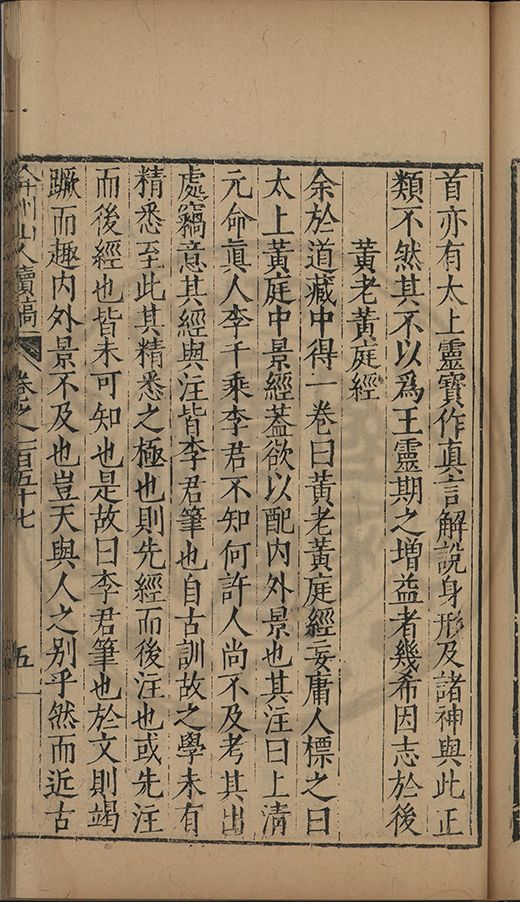 首亦有太上靈寶作真言解說身形及諸神與此正
類不然其不以爲王靈期之增益者幾希因志於後
黃老黃庭經
余於道藏中得一卷曰黃老黃庭經妄庸人標之曰
太上黃庭中景經葢欲以配內外景也其注曰上清
元命眞人李千乘李君不知何許人尚不及考其出
處竊意其經與注皆李君筆也自古訓故之學未有
精悉至此其精悉之極也則先經而後注也或先注
而後經也皆未可知也是故曰李君筆也於文則竭
蹶而趣內外景不及也豈天與人之別乎然而近古
弇州山人續稿 卷之一百五十七 五